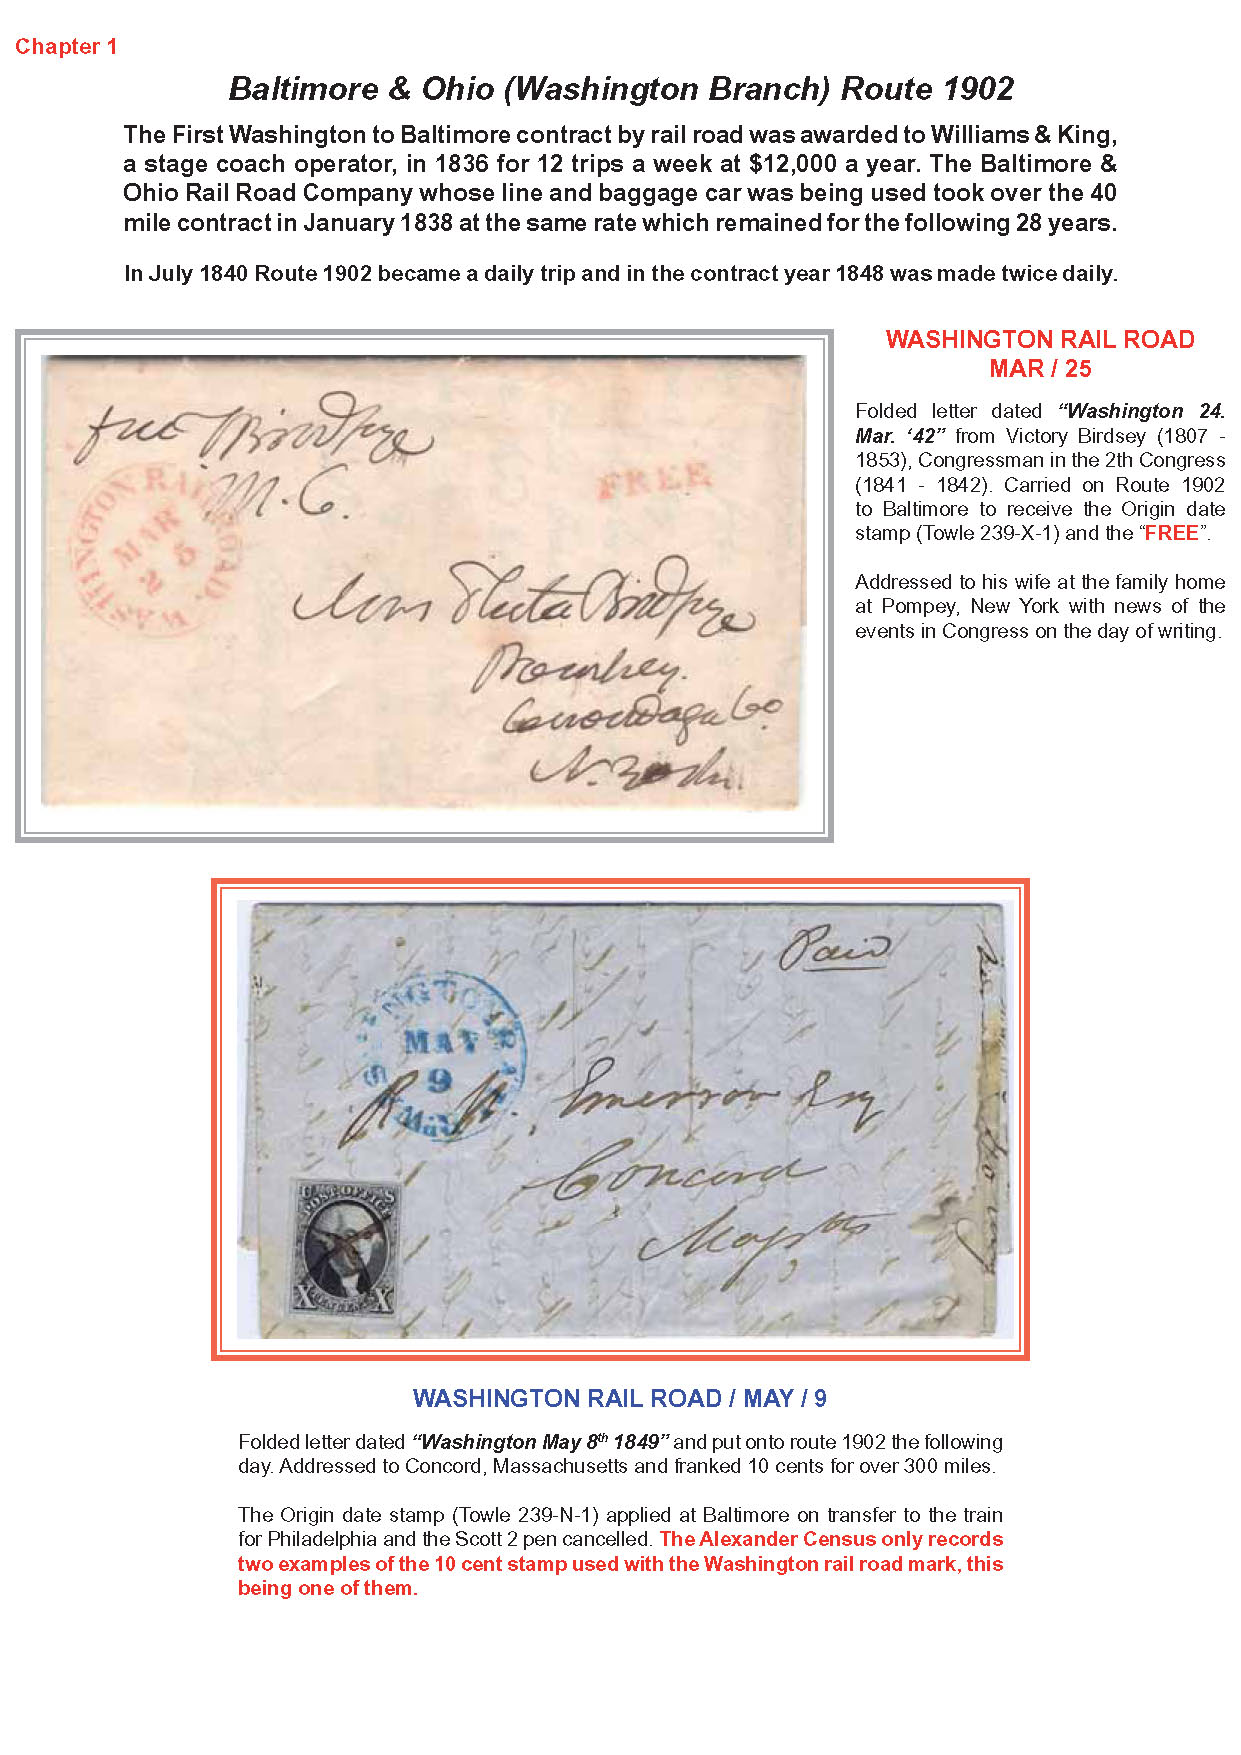 Chapter 1
Baltimore & Ohio (Washington Branch) Route 1902
The First Washington to Baltimore contract by rail road was awarded to Williams & King,
a stage coach operator, in 1836 for 12 trips a week at $12,000 a year. The Baltimore &
Ohio Rail Road Company whose line and baggage car was being used took over the 40
mile contract in January 1838 at the same rate which remained for the following 28 years.
In July 1840 Route 1902 became a daily trip and in the contract year 1848 was made twice daily.
free Birdseye
M.C.
WASHINGTON RAIL ROAD.
MAR
25
FREE
Birdseye
Pompey.
Onondaga Co.
N. York.
WASHINGTON RAIL ROAD
MAR / 25
Folded letter dated “Washington 24.
Mar. ‘42” from Victory Birdsey (1807 -
1853), Congressman in the 2th Congress
(1841 - 1842). Carried on Route 1902
to Baltimore to receive the Origin date
stamp (Towle 239-X-1) and the “FREE”.
Addressed to his wife at the family home
at Pompey, New York with news of the
events in Congress on the day of writing.
Paid
MAY
9
R. W. Emerson Esq
Concord
U S
POST OFFICE
X X
WASHINGTON RAIL ROAD / MAY / 9
Folded letter dated “Washington May 8th 1849” and put onto route 1902 the following
day. Addressed to Concord, Massachusetts and franked 10 cents for over 300 miles.
The Origin date stamp (Towle 239-N-1) applied at Baltimore on transfer to the train
for Philadelphia and the Scott 2 pen cancelled. The Alexander Census only records
two examples of the 10 cent stamp used with the Washington rail road mark, this
being one of them.